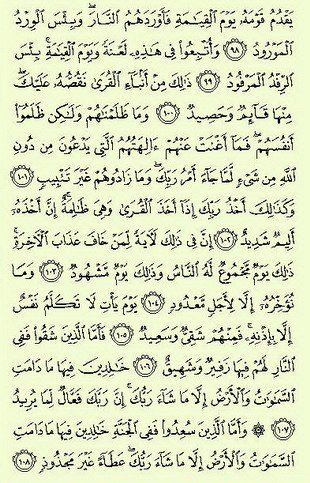 يَقْدُمُ قَوْمَهُۥ يَوْمَ ٱلْقِيَـٰمَةِ فَأَوْرَدَهُمُ ٱلنَّارَ ۖ وَبِئْسَ ٱلْوِرْدُ
ٱلْمَوْرُودُ ٩٨ وَأُتْبِعُوا۟ فِى هَـٰذِهِۦ لَعْنَةً وَيَوْمَ ٱلْقِيَـٰمَةِ ۚ بِئْسَ
ٱلرِّفْدُ ٱلْمَرْفُودُ ٩٩ ذَٰلِكَ مِنْ أَنۢبَآءِ ٱلْقُرَىٰ نَقُصُّهُۥ عَلَيْكَ ۖ
مِنْهَا قَآئِمٌ وَحَصِيدٌ ١٠٠ وَمَا ظَلَمْنَـٰهُمْ وَلَـٰكِن ظَلَمُوٓا۟
أَنفُسَهُمْ ۖ فَمَآ أَغْنَتْ عَنْهُمْ ءَالِهَتُهُمُ ٱلَّتِى يَدْعُونَ مِن دُونِ
ٱللَّهِ مِن شَىْءٍ لَّمَّا جَآءَ أَمْرُ رَبِّكَ ۖ وَمَا زَادُوهُمْ غَيْرَ تَتْبِيبٍ ١٠١
وَكَذَٰلِكَ أَخْذُ رَبِّكَ إِذَآ أَخَذَ ٱلْقُرَىٰ وَهِىَ ظَـٰلِمَةٌ ۚ إِنَّ أَخْذَهُۥٓ
أَلِيمٌ شَدِيدٌ ١٠٢ إِنَّ فِى ذَٰلِكَ لَـَٔايَةً لِّمَنْ خَافَ عَذَابَ ٱلْـَٔاخِرَةِ ۚ
ذَٰلِكَ يَوْمٌ مَّجْمُوعٌ لَّهُ ٱلنَّاسُ وَذَٰلِكَ يَوْمٌ مَّشْهُودٌ ١٠٣ وَمَا
نُؤَخِّرُهُۥٓ إِلَّا لِأَجَلٍ مَّعْدُودٍ ١٠٤ يَوْمَ يَأْتِ لَا تَكَلَّمُ نَفْسٌ
إِلَّا بِإِذْنِهِۦ ۚ فَمِنْهُمْ شَقِىٌّ وَسَعِيدٌ ١٠٥ فَأَمَّا ٱلَّذِينَ شَقُوا۟ فَفِى
ٱلنَّارِ لَهُمْ فِيهَا زَفِيرٌ وَشَهِيقٌ ١٠٦ خَـٰلِدِينَ فِيهَا مَا دَامَتِ
ٱلسَّمَـٰوَٰتُ وَٱلْأَرْضُ إِلَّا مَا شَآءَ رَبُّكَ ۚ إِنَّ رَبَّكَ فَعَّالٌ لِّمَا يُرِيدُ
١٠٧ ۞ وَأَمَّا ٱلَّذِينَ سُعِدُوا۟ فَفِى ٱلْجَنَّةِ خَـٰلِدِينَ فِيهَا مَا دَامَتِ
ٱلسَّمَـٰوَٰتُ وَٱلْأَرْضُ إِلَّا مَا شَآءَ رَبُّكَ ۖ عَطَآءً غَيْرَ مَجْذُوذٍ ١٠٨